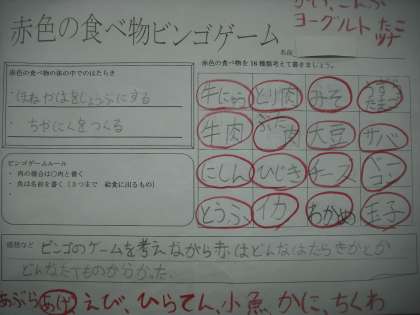 こんぶ
ヨーグルト たこ
ツナ
赤色の食べ物ビンゴゲーム
名前
赤色の食べ物の体の中でのはたらき
・ほねやはをじょうぶにする
・ちやにくをつくる
ビンゴゲームルール
・ 肉の場合は〇肉と書く
・ 魚は名前を書く（3つまで 給食に出るもの）
・
赤色の食べ物を16種類考えて書きましょう。
牛にゅう とり肉 みそ うずらたまご
牛肉 ぶた肉 大豆 サバ
にしん ひじき チーズ ベーコン
とうふ イカ わかめ 玉子
感想など
ビンゴのゲームを考えながら赤はどんなはたらきかとか
どんなたべものかわかった。
あぶらあげ、えび、ひらてん、小魚、かに、ちくわ